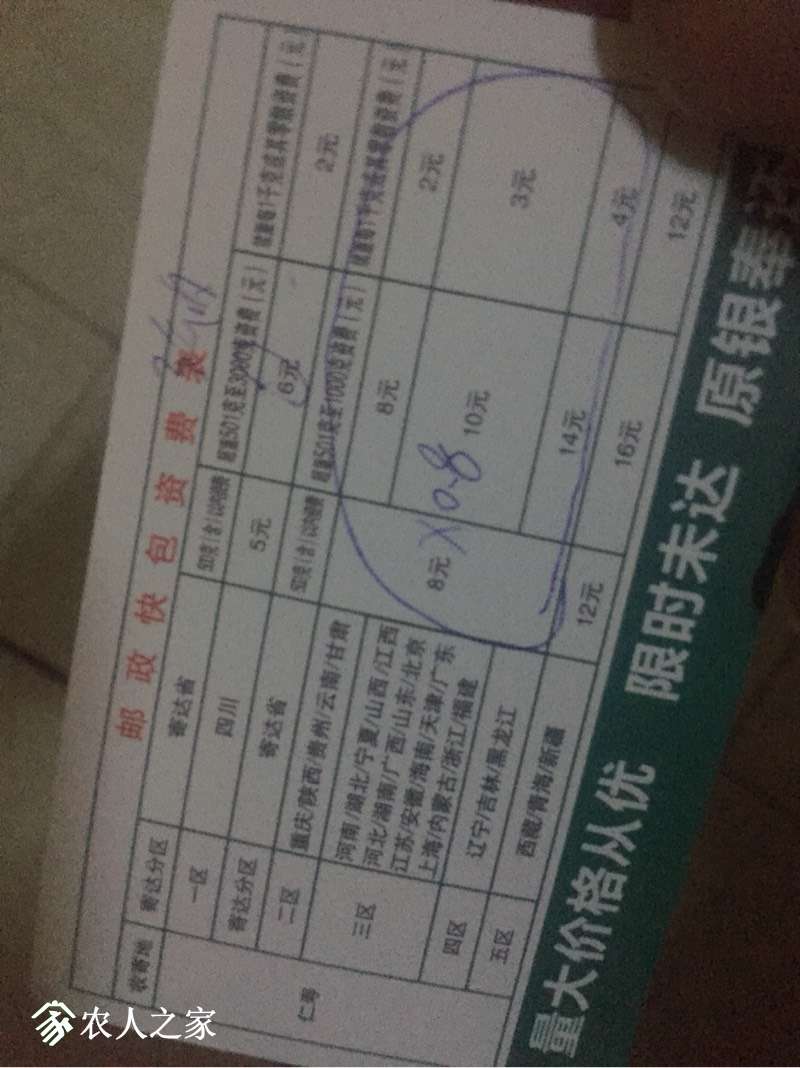 邮政快包资费表
收寄地 寄达分区 寄达省 500克(含)以内资费 超重501克至3000克资费(元) 续重每1千克或其零数资费(元)
仁寿 一区 四川 5元 6元 2元
寄达分区 寄达省 500克(含)以内资费 超重501克至1000克资费(元) 续重每1千克或其零数资费(元)
二区 重庆/陕西/贵州/云南/甘肃 8元 8元 2元
三区 河南/湖北/宁夏/山西/江西 10元 3元
河北/湖南/广西/山东/北京
江苏/安徽/海南/天津/广东
上海/内蒙古/浙江/福建
四区 辽宁/吉林/黑龙江 14元 4元
五区 西藏/青海/新疆 12元 16元 12元
×0.8
量大价格从优 限时未达 原银奉还
农人之家